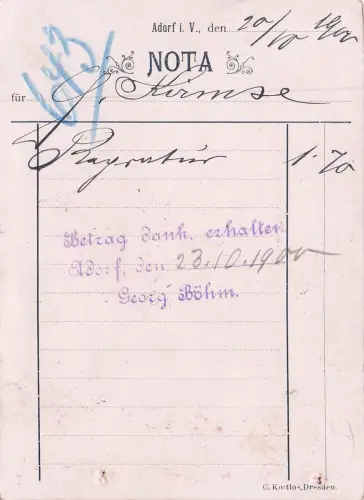 Adorf i. V., den 20/10 1900
NOTA
für G. Kirmse
Reparatur 1.70
Betrag dank. erhalten
Adorf, den 23.10.1900
Georg Böhm.
C. Kostlos, Dresden.